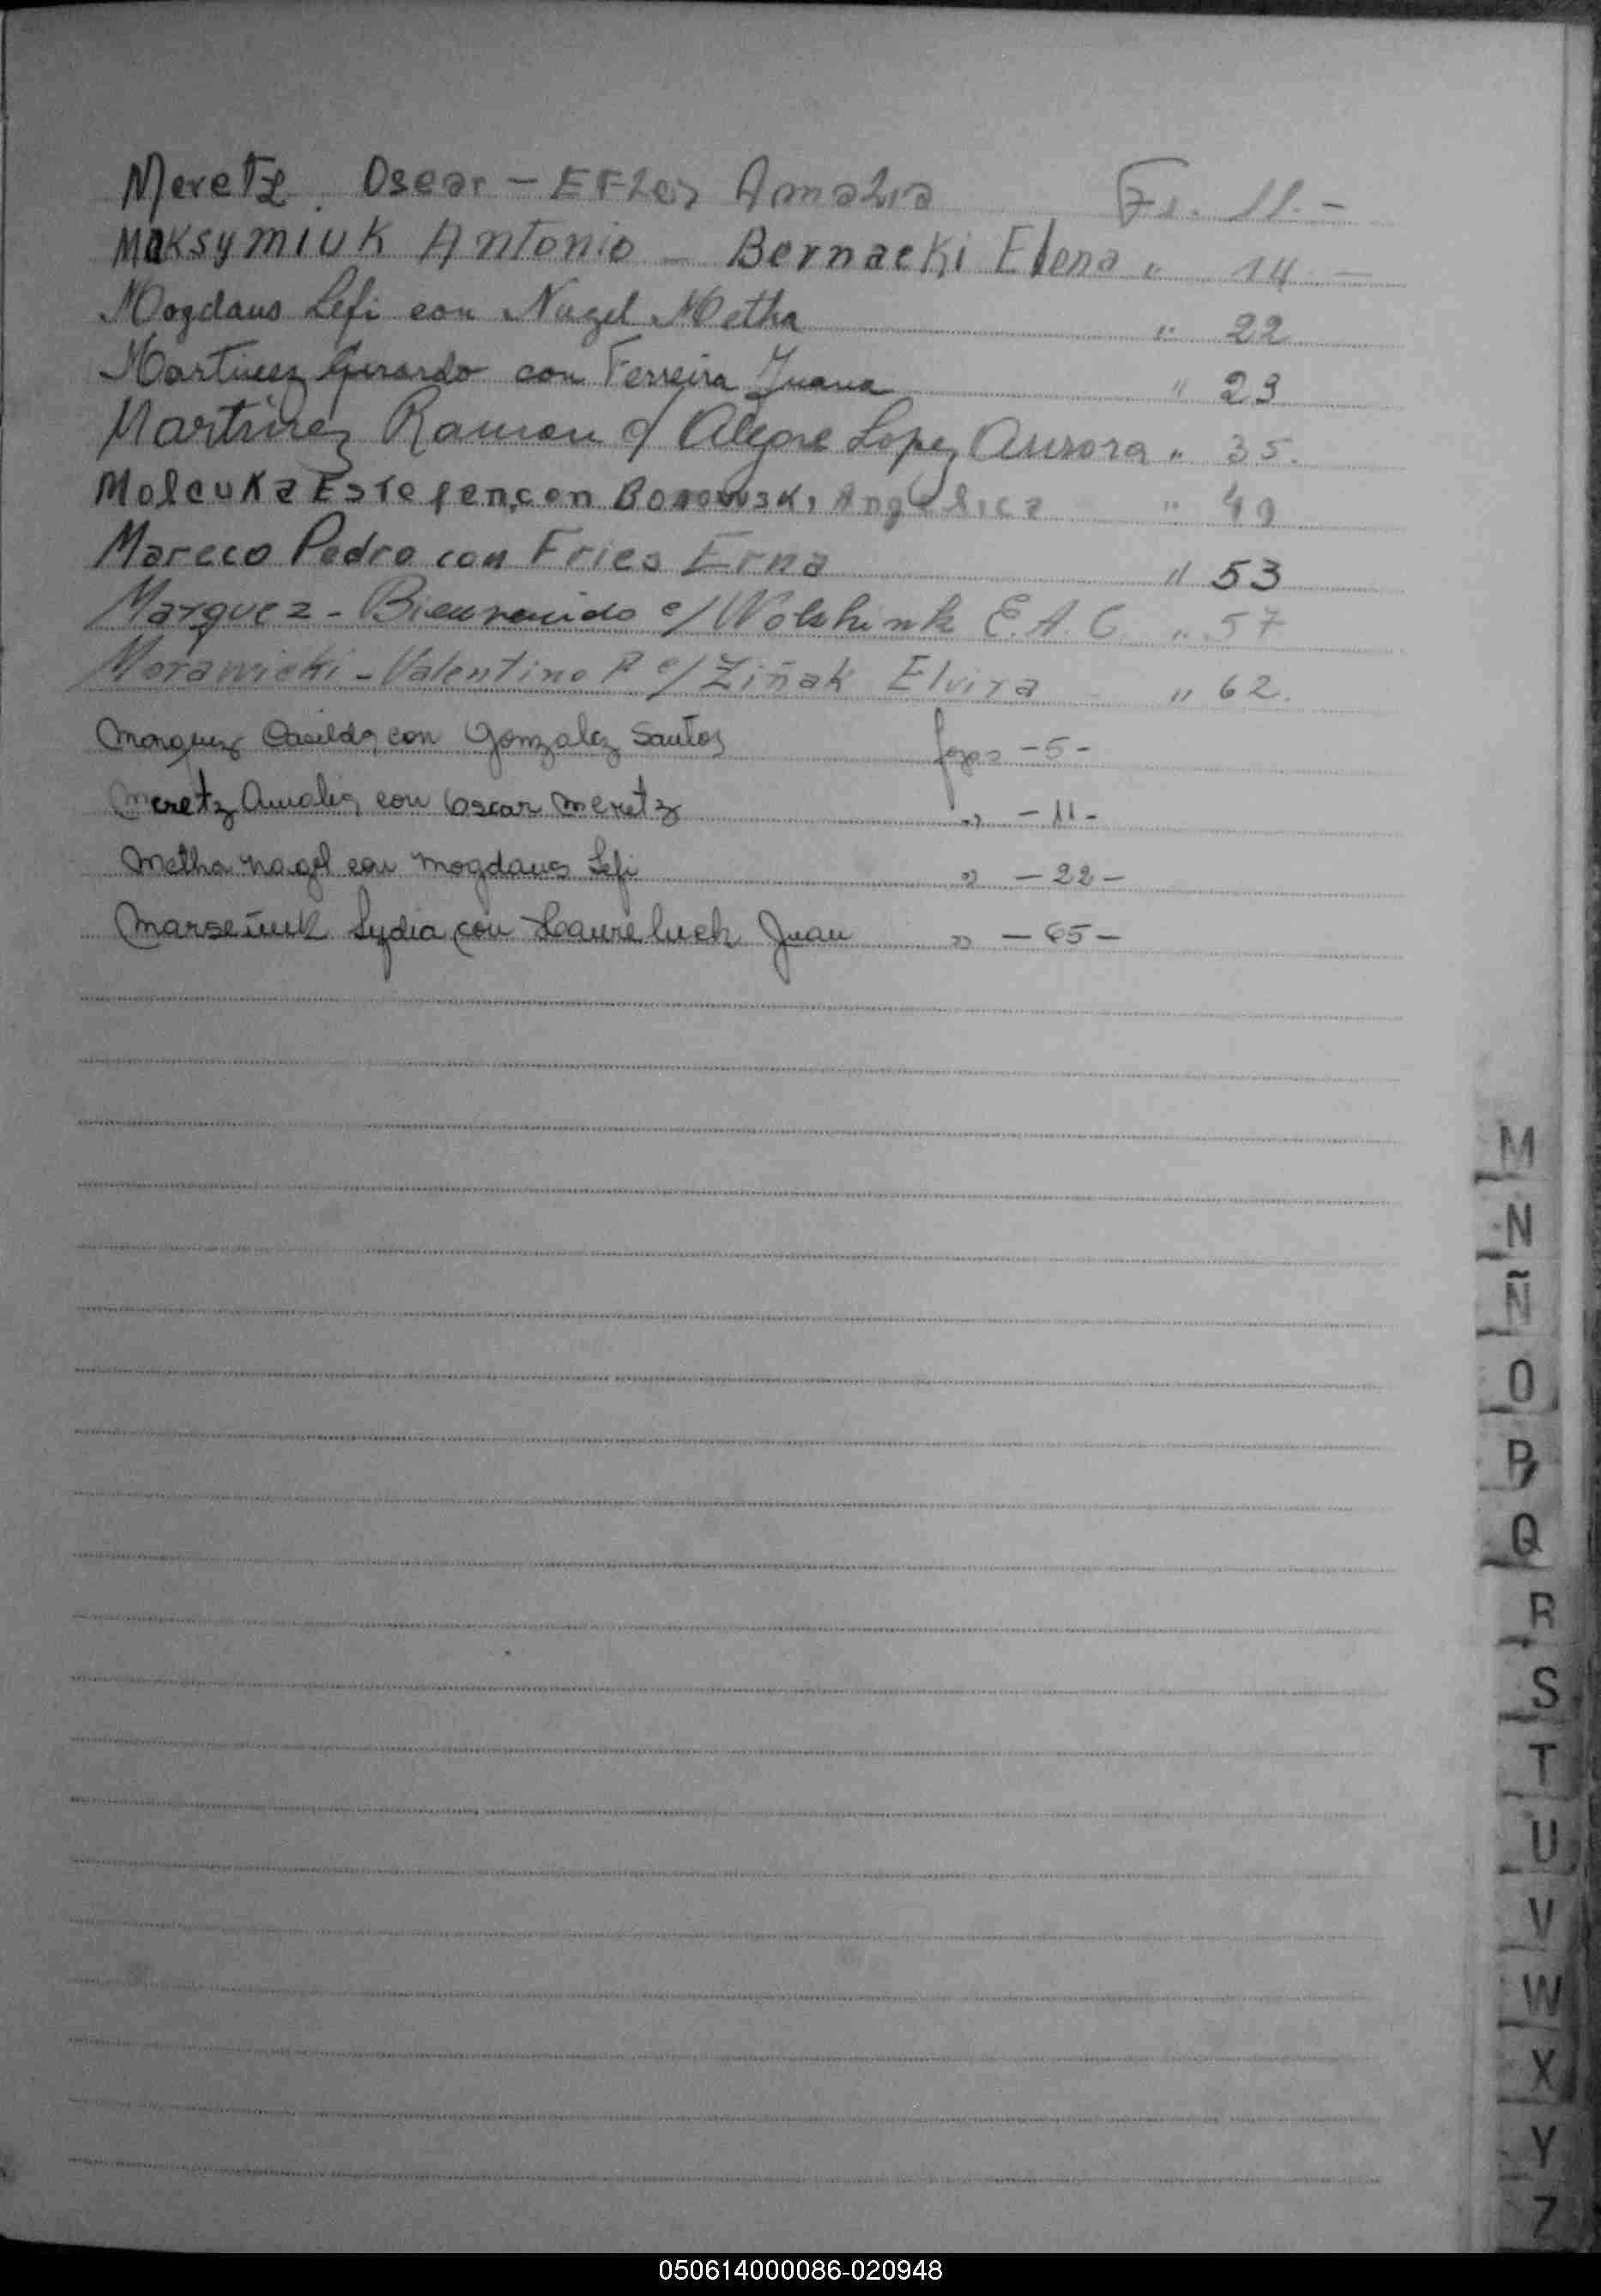 Meretz. Oscar - Efler Amalia Fs. 11.-
Maksymiuk Antonio - Bernacki Elena " 14 -
Mogdans Lefi con Nagel Metha " 22
Martinez Gerardo con Ferreira Juana " 23
Martinez Ramon c/ Alegre Lopez Aurora " 35.
Molcuka Estefen, con Borowski Angelica " 49
Mareco Pedro con Fries Erna " 53
Marquez - Bienvenido c/ Wolshink E. A. C. " 57
Morawicki - Valentino R c/ Ziñak Elvira " 62.
Marquez Casilda con Gonzalez Santos fojas - 5 -
Meretz Amalia con Oscar Meretz " - 11 -
Metha Nagel con Mogdans Lefi " - 22 -
Lydia con Juan " - 65 -
M
N
Ñ
O
P
Q
R
S
T
U
V
W
X
Y
Z
050614000086-020948